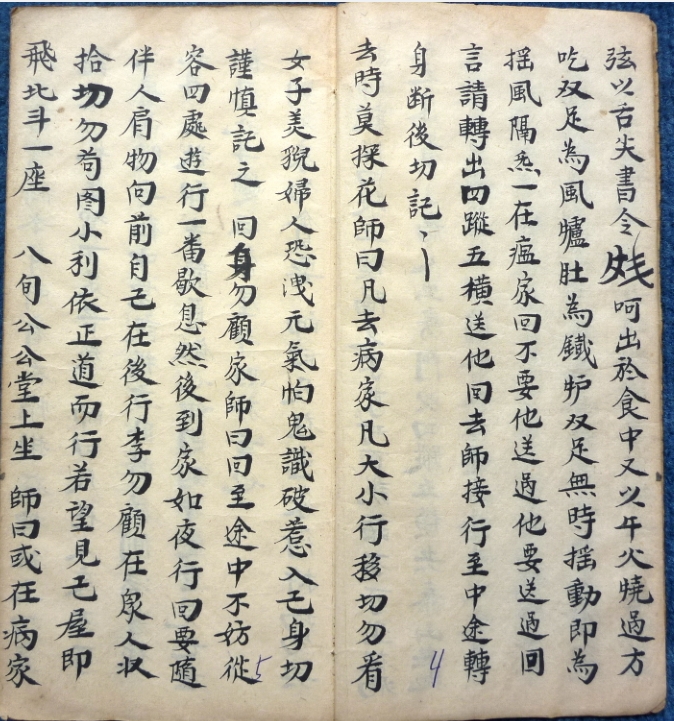 弦以舌尖書令呵出於食中又以午火燒過方
吃双足為風爐肚為鐵炉双足無時揺動即為
揺風隔炁一在瘟家回不要他送過他要送過回
言請轉出四蹤五橫送他回去師接行至中途轉
身断後切記
去時莫採花師曰凡去病家凡大小行移切勿看
4
女子美貌婦人恐洩元氣怕鬼識破惹入己身切
謹慎記之 回身勿顧家師曰回至途中不妨從
5
容四處遊行一番歇息然後到家如夜行回要隨
伴人肩物向前自己在後行李勿顧在眾人收
拾切勿苟图小利依正道而行若望見己屋即
飛北斗一座 八旬公公堂上坐 師曰或在病家